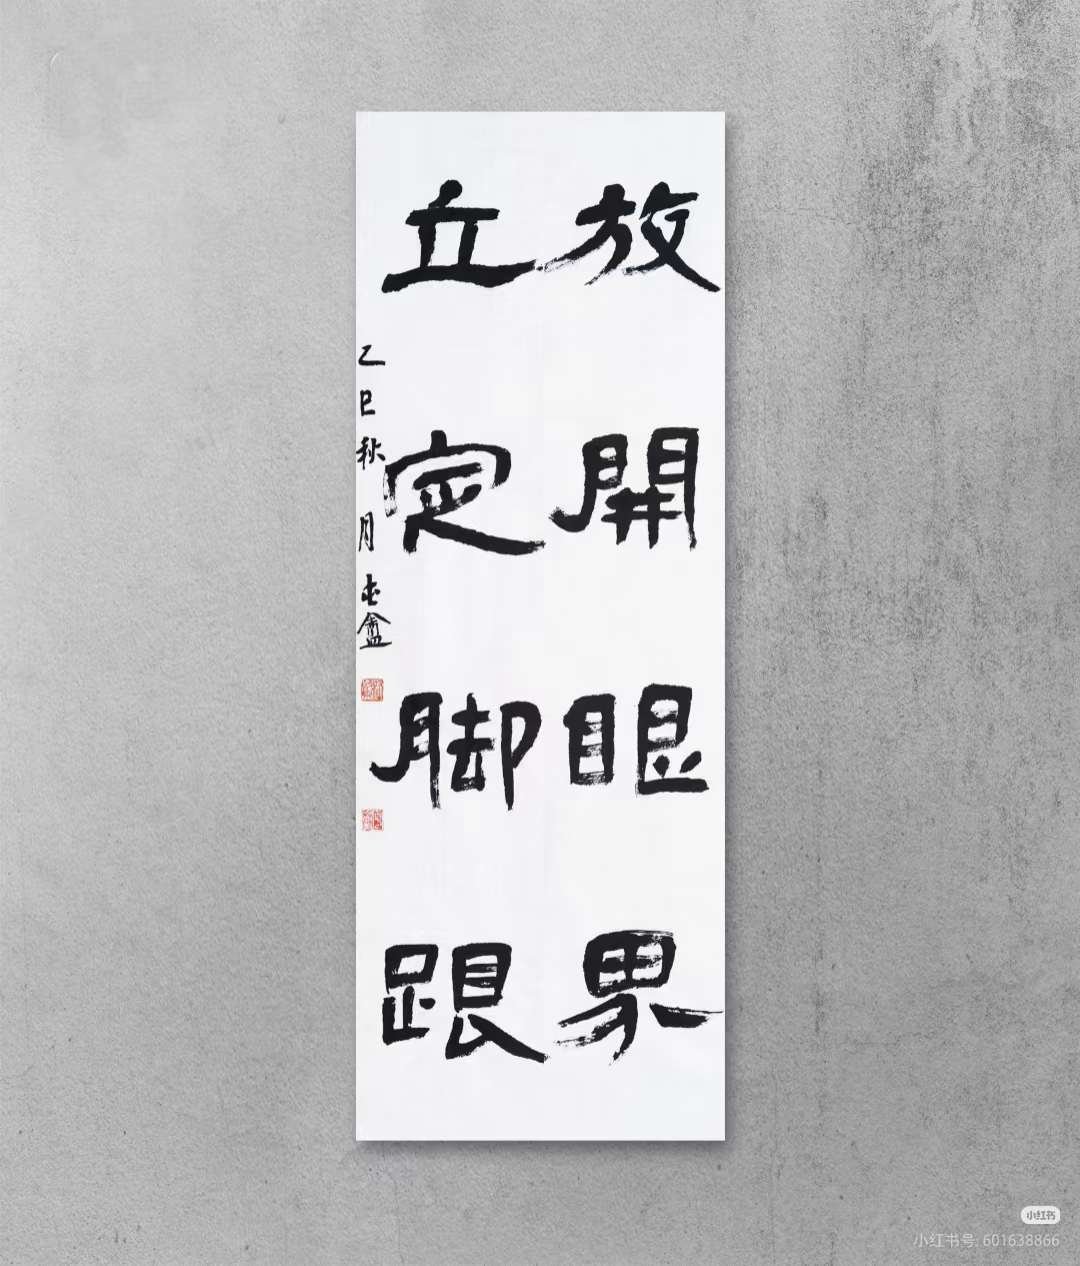 放開眼界
立定脚跟
乙巳秋月
小红书
小红书号: 601638866